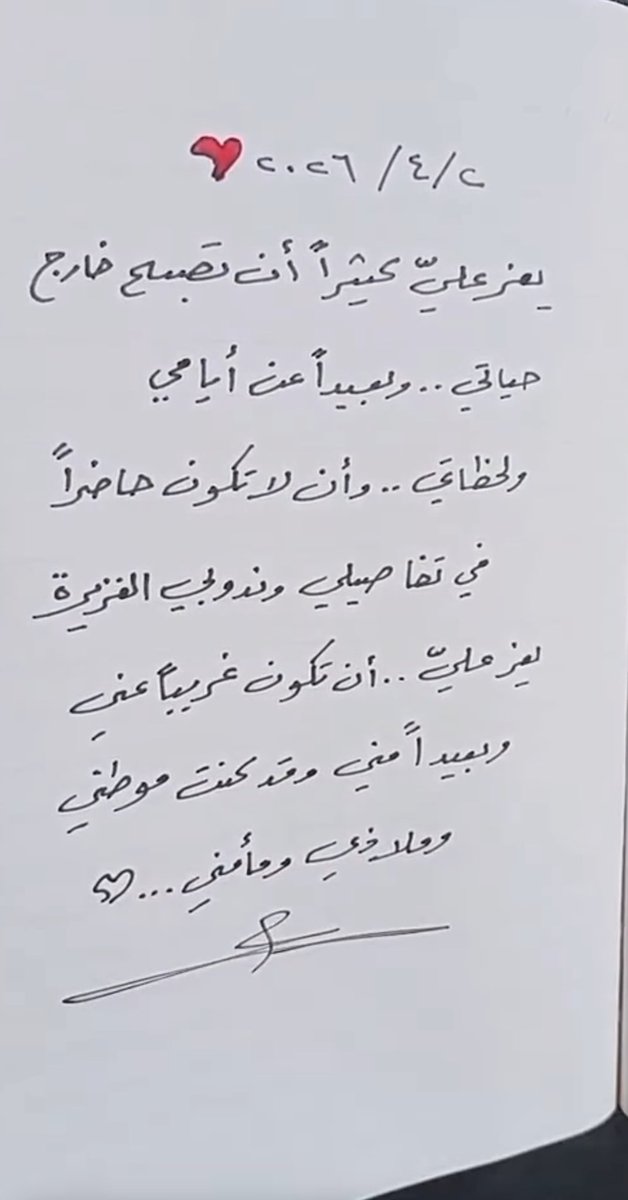 ٢٠٢٦/٤/٢
يعز عليّ كثيراً أن تصبح خارج
حياتي .. وبعيداً عن أيامي
ولحظاتي .. وأن لا تكون حاضراً
في تفاصيلي وندوبي الغزيرة
يعز عليّ .. أن تكون غريباً عني
وبعيداً مني وقد كنت موطني
وملاذي ومأمني ...